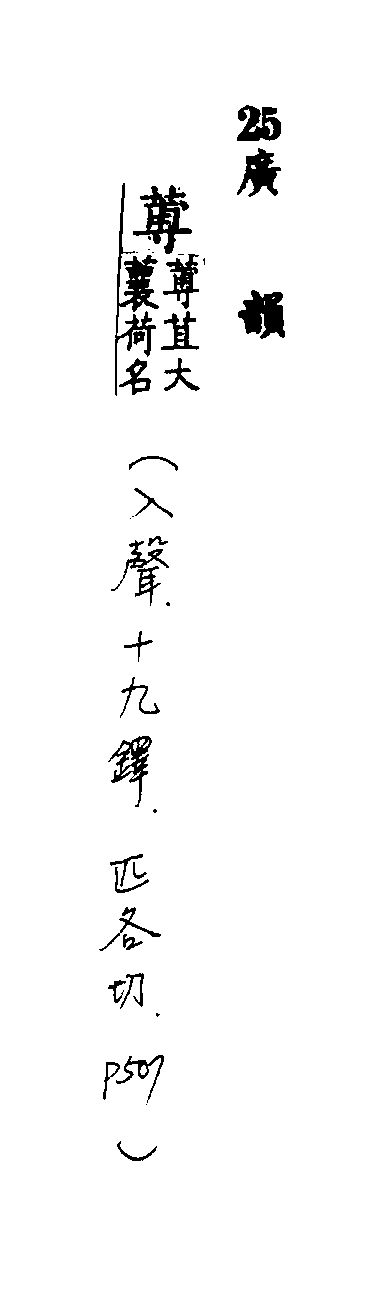 25 廣韻
蒪
蒪苴大
蘘荷名
(入聲.十九鐸.匹各切.P507)